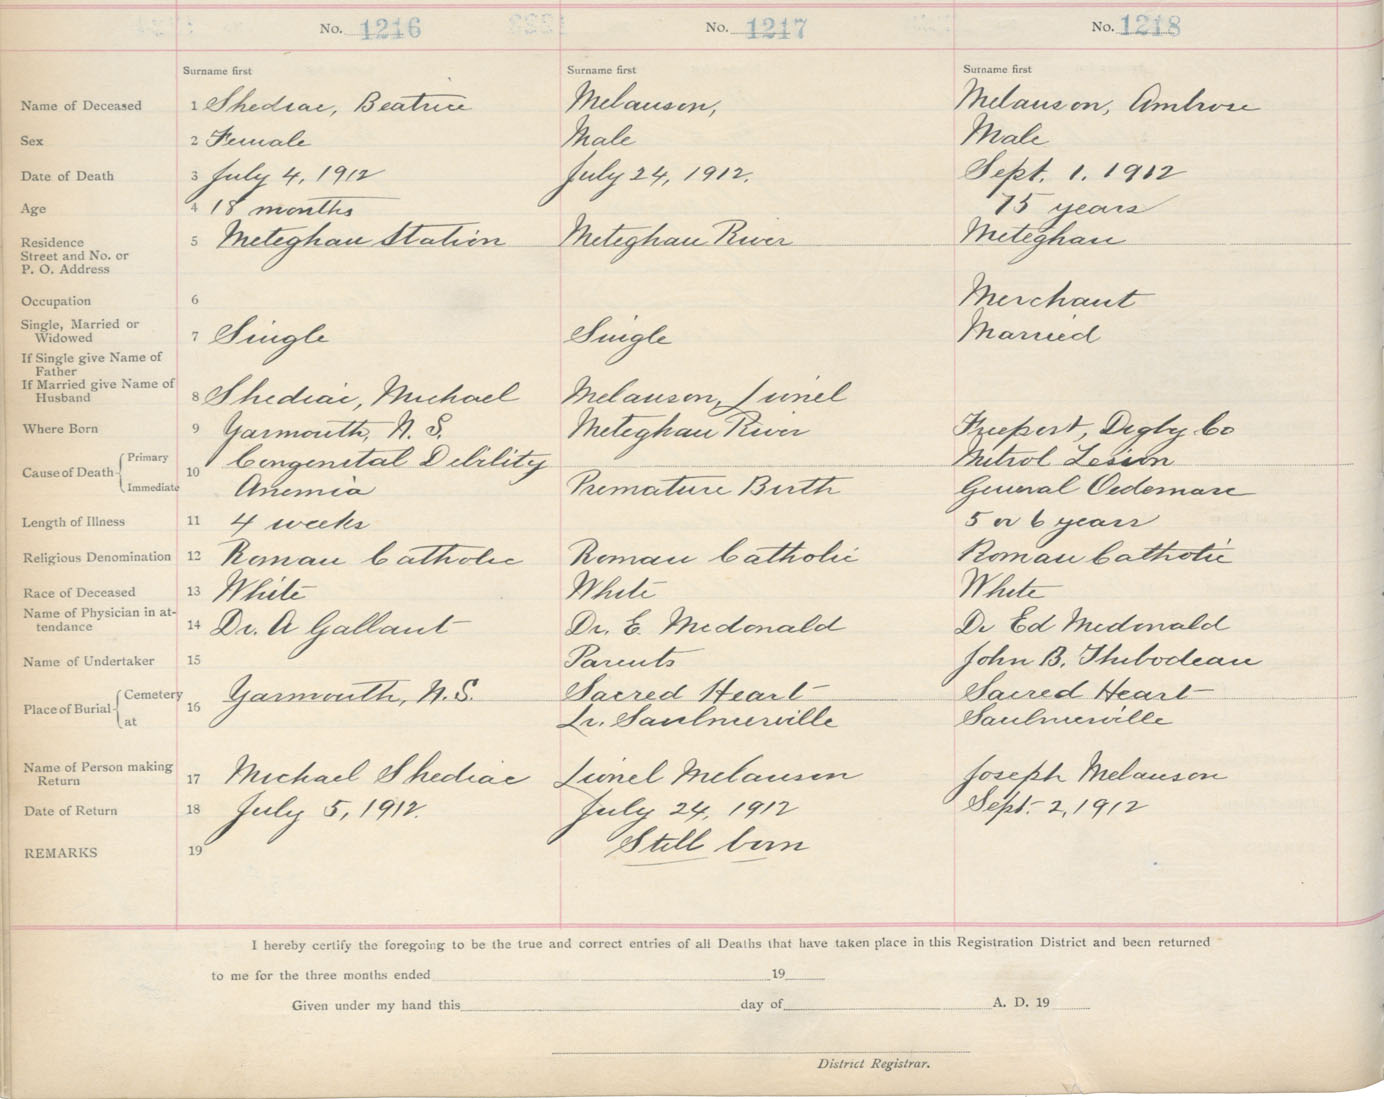 No. 1216 No. 1217 No. 1218
Surname first Surname first Surname first
Name of Deceased 1 Shediac, Beatrice Melanson, Melanson, Ambrose
Sex 2 Female Male Male
Date of Death 3 July 4, 1912 July 24, 1912. Sept. 1. 1912
Age 4 18 months 75 years
Residence 5 Meteghan Station Meteghan River Meteghan
Street and No. or
P. O. Address
Occupation 6 Merchant
Single, Married or
Widowed 7 Single Single Married
If Single give Name of
Father
If Married give Name of
Husband 8 Shediac, Michael Melanson, Lionel
Where Born 9 Yarmouth, N. S. Meteghan River Freeport, Digby Co
Cause of Death Primary 10 Congenital Debility Mitrol Lesion
Immediate Anemia Premature Birth General Oedemase
Length of Illness 11 4 weeks 5 or 6 years
Religious Denomination 12 Roman Catholic Roman Catholic Roman Catholic
Race of Deceased 13 White White White
Name of Physician in at-
tendance 14 Dr. A Gallant Dr. E. Mcdonald Dr Ed Mcdonald
Name of Undertaker 15 Parents John B. Thibodeau
Place of Burial Cemetery 16 Yarmouth, N.S. Sacred Heart Sacred Heart
at Lr. Saulnierville Saulnierville
Name of Person making
Return 17 Michael Shediac Lionel Melanson Joseph Melanson
Date of Return 18 July 5, 1912. July 24, 1912 Sept. 2, 1912
REMARKS 19 Still born
I hereby certify the foregoing to be the true and correct entries of all Deaths that have taken place in this Registration District and been returned
to me for the three months ended 19
Given under my hand this day of A. D. 19
District Registrar.